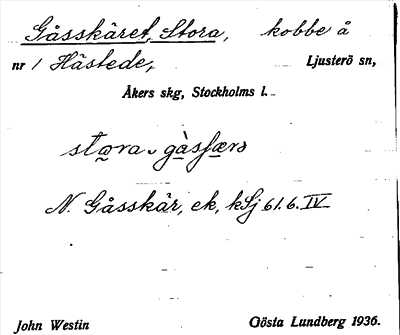 Gåsskäret, Stora, kobbe å
nr 1 Hästede, Ljusterö sn,
Åkers skg, Stockholms l.
stora gåsfærə
N. Gåsskär, ek, kSj 61.6.IV
John Westin Gösta Lundberg 1936.